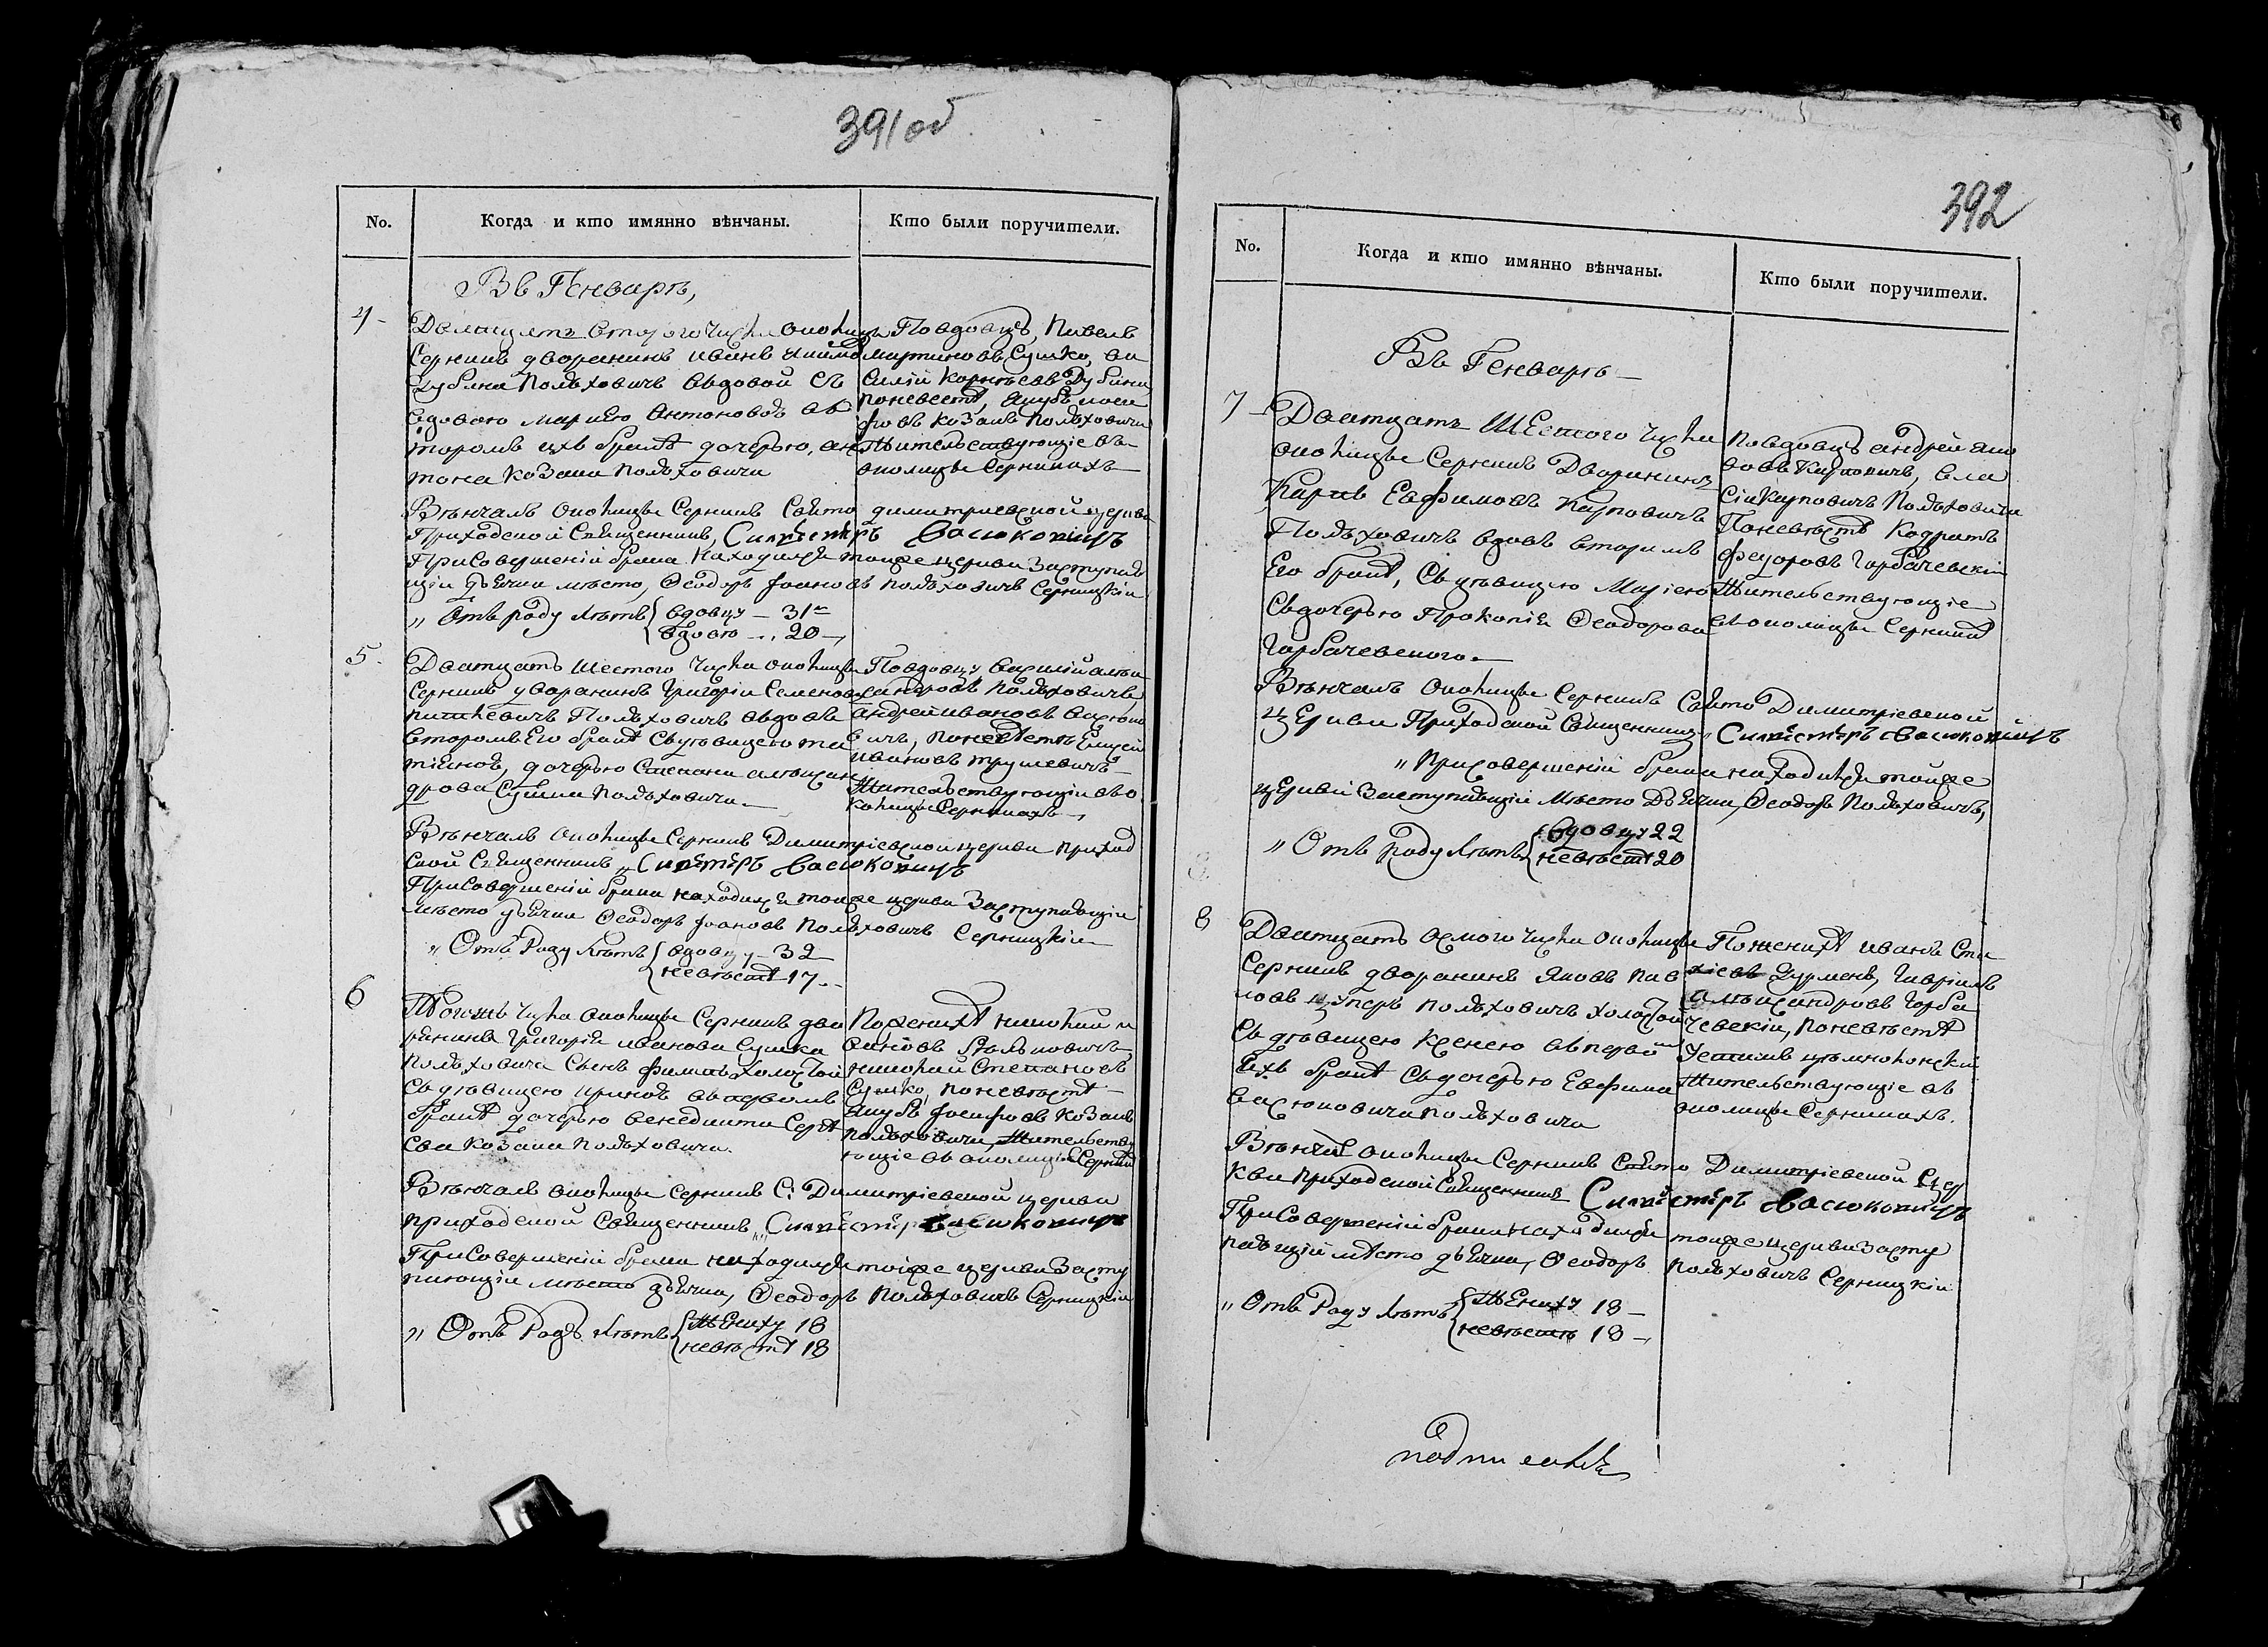 391 об
No.
Когда и кто имянно вѣнчаны.
Кто были поручители.
Въ Генварѣ,
4
Двашцать второго Числа околицы
Серникъ дворанинъ иванъ
Дубина Полѣховичъ вдовой съ
вдовою Мариею Антоновою въ
торомъ ихъ бракѣ дочерью, ан
тона козака полѣховича
По вдовцѣ, Павелъ
мартиновъ Сушко, ва
силій Корнѣевъ Дубина
поневестѣ, якубъ иоси
фовъ козакъ полѣховичи
Жительствующіе въ
околицѣ Серникахъ
Вѣнчалъ околицы Серникъ Свято димитриевской церкви
Приходской Священникъ, Силвестеръ Васюковичъ
При Совершеніи брака находился тойже церкви Заступаю
щіи дьячка мѣсто, Ѳеодоръ Іоановъ полѣховичъ Серницкіи
„ Отъ роду лѣтъ вдовцу — 31
вдовою — 20
5.
Дватцать Шестого Числа околицы
Серникъ дворанинъ Григоріи Семеновъ
Полѣховичъ вдовъ
второмъ Его бракѣ съ дѣвицею та
тіяною, дочерью Степана алѣксан
дрова Сушка полѣховича.
По вдовцу василій алѣк
сандровъ полѣховичъ,
андрей ивановъ васюко
вичъ, поневестѣ Елисей
ивановъ трушевичъ
Жителствующіи въ о
колицы Серникахъ
Вѣнчалъ околицы Серникъ Димитріевской церкви приход
ской Священникъ „Силвестеръ Васюковичъ
При Совершеніи брака находился тойже церкви Заступающіи
мѣсто дьячка Ѳеодоръ Іоановъ полѣховичъ Серницкіи
„ Отъ Роду Лѣтъ вдовцу — 32
невѣстѣ 17
6
Тогожъ Числа околицы Серникъ дво
ранинъ Григорія иванова Сушка
полѣховича Сынъ филипъ холостой
съ дѣвицею ириною въ первомъ
бракѣ дочерью венедикта Сергѣ
ева козака полѣховича.
По женихѣ николай и
вановъ
николай Степановъ
Сушко, поневѣстѣ
якубъ Іосифовъ козакъ
полѣховичи, Жительству
ющіе въ околицы Серник
Вѣнчалъ околицы Серникъ С: Димитріевской церкви
приходской Священникъ „Силвестеръ Васюковичъ
При Совершеніи брака находился тойже церкви засту
пающіи мѣсто дьячка, Ѳеодоръ Полѣховичъ Серницкіи
„ Отъ Роду лѣтъ Жениху 18
невѣстѣ 18
392
No.
Когда и кто имянно вѣнчаны.
Кто были поручители.
Въ Генварѣ
7
Дватцать Шестого Числа
околицы Серникъ Дворининъ
Карпъ Евфимовъ Карповичъ
Полѣховичъ вдовъ вторимъ
Его бракѣ, съ дѣвицею Маріею
съ дочерью Прокопія Ѳеодорова
Горбачевского.
повдовцѣ андрей яко
вовъ Карповичъ, вла
сій Карповичъ Полѣховичи
Поневѣстѣ Кодратъ
феодоровъ Горбачевскіи
Жительствующіе
въ околицы Серникъ
Вѣнчалъ околицы Серникъ Свято Димитріевской
церкви Приходской Священникъ „Силвестеръ Васюковичъ
„ При совершеніи брака находился тойже
церкви Заступающіи Мѣсто дьячка, Ѳеодоръ Полѣховичъ,
„ Отъ Роду Лѣтъ вдовцу 22
невѣстѣ 20
8
Дватцать осмого Числа околицы
Серникъ дворанинъ Яковъ пав
ловъ полѣховичъ холостой
Съ дѣвицею Ксенею въ перво
ихъ бракѣ съ дочерью Евфима
васюковича полѣховича
По женихѣ иванъ
Гаврiилъ
алѣксандровъ Горба
чевскіи, поневѣстѣ
Жительствующіе въ
околицы Серникахъ.
Вѣнчалъ околицы Серникъ Свято Димитріевской Цер
кви приходской Священникъ Силвестеръ Васюковичъ
При Совершеніи брака находился тойже церкви засту
пающіи мѣсто дьячка, Ѳеодоръ полѣховичъ Серницкіи
„ Отъ Роду Лѣтъ Жениху 18
невѣстѣ 18